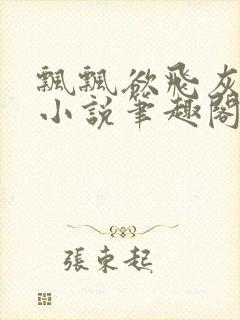 飄飄欲飛灰
小說筆趣閣
張東起